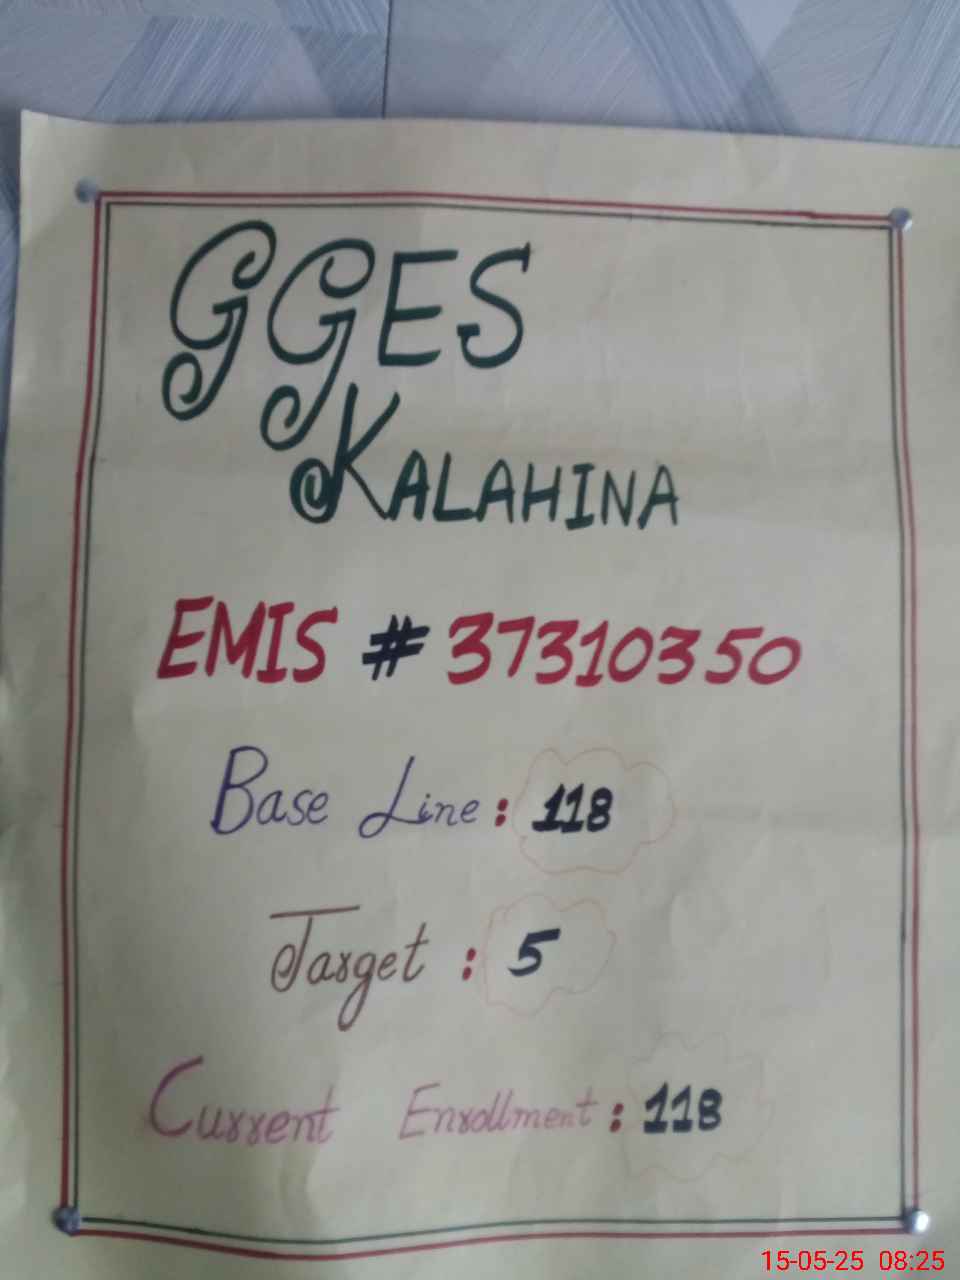 GGES
KALAHINA
EMIS # 37310350
Base Line : 118
Target : 5
Current Enrollment : 118
15-05-25 08:25